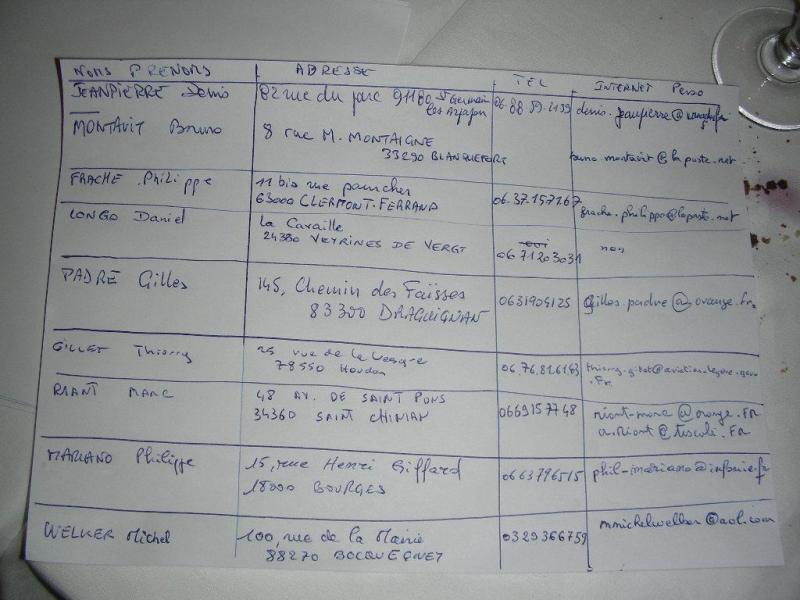 NOMS PRENOMS ADRESSE TEL INTERNET Perso
JEANPIERRE Denis 82 rue du parc 91180 St Germain
les Arpajon 06.88.59.2139
MONTAVIT Bruno 8 rue M. MONTAIGNE
33290 BLANQUEFORT bruno.montavit@laposte.net
FRACHE Philippe 11 bis rue
63000 CLERMONT-FERRAND 06.37.157267 frache.philippe@laposte.net
LONGO Daniel La Cavaille
24380 VEYRINES DE VERGT 0671203031 non
PADRE Gilles 145, Chemin des Faïsses 0631904125 gilles.padre@orange.fr
83300 DRAGUIGNAN
GILLET Thierry 25 rue de la Vesgre 06.76.826193
78550 Houdan
RIANT MARC 48 AV. DE SAINT PONS 0669157748 riant-marc@orange.FR
34360 SAINT CHINIAN a.riant@tiscali.FR
MARIANO Philippe 15, rue Henri Giffard 0663796515 phil-mariano@infonie.fr
18000 BOURGES
WELKER Michel 100, rue de la Mairie 0329366759 mmichelwelker@aol.com
88270 BOCQUEGNEY